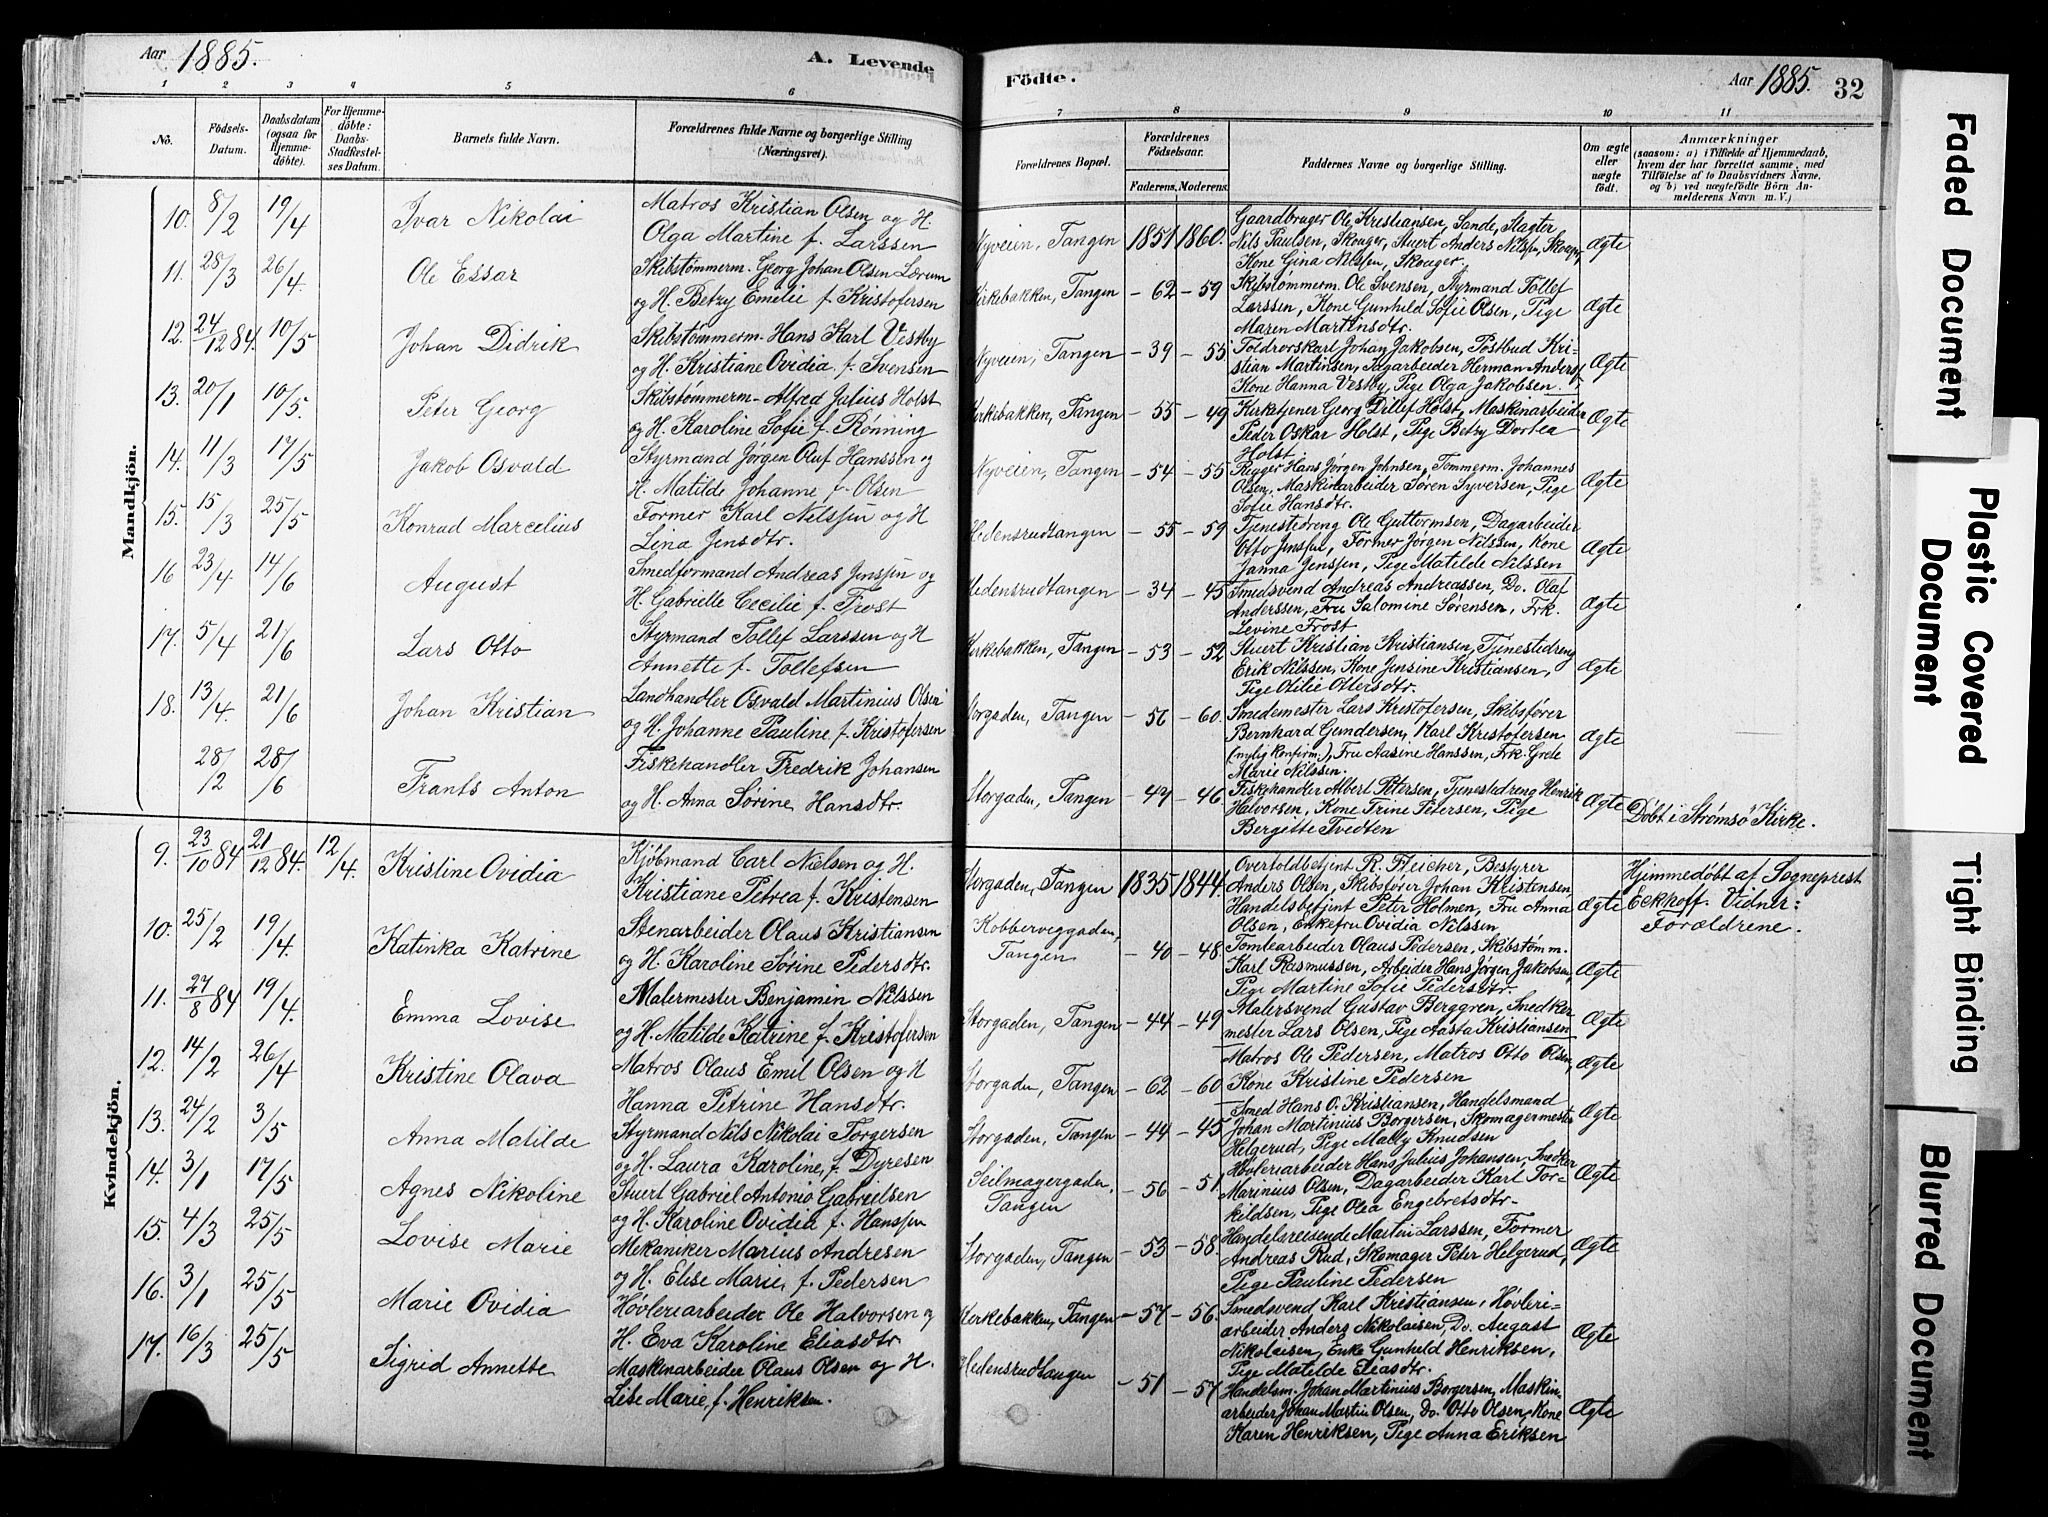 Aar 1885.
A. Levende
Födte.
Aar 1885. 32
1 2 3 4 5 6 7 8 9 10 11
No.
Födsels-Datum.
Daabsdatum (ogsaa for Hjemmedöbte).
For Hjemmedöbte: Daabs-Stadfæstelses Datum.
Barnets fulde Navn.
Forældrenes fulde Navne og borgerlige Stilling (Næringsvei).
Forældrenes Bopæl.
Forældrenes Födselsaar.
Faderens. Moderens.
Faddernes Navne og borgerlige Stilling.
Om ægte eller uægte födt.
Anmærkninger
(saasom: a) i Tilfælde af Hjemmedaab,
hvem der har forrettet samme, med
Tilföielse af to Daabsvidners Navne,
og b) ved uægtefödte Börn An-
melderens Navn m. V.)
Mandkjön.
10. 8/2 19/4 Ivar Nikolai
Matros Kristian Olsen og H.
Olga Martine f. Larssen
Nyveien, Tangen 1857 1860.
Gaardbruger Ole Kristiansen, Sande, Slagter
Nils Paulsen, Skouger, Stuert Anders Nilssen, Skouger,
Kone Gina Nilssen, Skouger.
Ægte
11. 28/3 26/4. Ole Essar
Skibstømmerm. Georg Johan Olsen Lærum
og H. Betzy Emelie f. Kristofersen
Kirkebakken, Tangen - 62 - 59
Skibstømmerm. Ole Svensen, Styrmand Tollef
Larssen, Kone Gunhild Sofie Olsen, Pige
Maren Martinsdtr.
Ægte
12. 24/12 84. 10/5 Johan Didrik
Skibstømmerm. Hans Karl Vestby
og H. Kristiane Ovidia f. Svensen
Nyveien, Tangen - 39 - 55
Toldrorskarl Johan Jakobsen, Postbud Kri-
stian Martinsen, Dagarbeider Herman Anders.,
Kone Hanna Vestby, Pige Olga Jakobsen.
Ægte
13. 20/1 10/5. Peter Georg
Skibstømmerm. Alfred Julius Holst
og H. Karoline Sofie f. Rønning
Kirkebakken, Tangen - 55 - 49
Kirketjener Georg Ditlef Holst, Maskinarbeider
Peder Oskar Holst, Pige Betzy Dortea
Holst
Ægte
14. 11/3 17/5 Jakob Osvald
Styrmand Jørgen Oluf Hanssen og
H. Matilde Johanne f. Olsen
Nyveien, Tangen - 54 - 55
Rigger Hans Jørgen Johnsen, Tømmerm. Johannes
Olsen, Maskinarbeider Søren Syversen, Pige
Sofie Hansdtr.
Ægte
15. 15/3 25/5 Konrad Marcelius
Former Karl Nilssen og H
Lina Jensdtr.
Hedensrudtangen - 55 - 59
Tjenestedreng Ole Guttormsen, Dagarbeider
Otto Jenssen, Former Jørgen Nilssen, Kone
Janna Jenssen, Pige Matilde Nilssen
Ægte
16 23/4 14/6 August
Smedformand Andreas Jenssen og
H. Gabrielle Cecilie f. Frost
Hedensrudtangen - 34 - 45
Smedsvend Andreas Andreassen, Do. Olaf
Anderssen, Fru Salomine Sørensen, Frk.
Levine Frost
Ægte
17. 5/4 21/6 Lars Otto
Styrmand Tollef Larssen og H
Annette f. Tollefsen
Kirkebakken, Tangen - 53 - 52
Stuert Kristian Kristiansen, Tjenestedreng
Erik Nilssen, Kone Jensine Kristiansen,
Pige Otilie Ottersdtr.
Ægte
18. 13/4. 21/6 Johan Kristian
Landhandler Osvald Martinius Olsen
og H. Johanne Pauline f. Kristofersen
Storgaden, Tangen - 56 - 60.
Smedemester Lars Kristofersen, Skibsfører
Bernhard Gundersen, Karl Kristofersen
(nylig konfirm.), Fru Aasine Hanssen, Frk. Grete
Marie Nilssen.
Ægte
28/2 28/6 Frants Anton
Fiskehandler Fredrik Johansen
og H. Anna Sørine Hansdtr.
Storgaden, Tangen - 47 - 46
Fiskehandler Albert Petersen, Tjenestedreng Henrik
Halvorsen, Kone Trine Petersen, Pige
Bergitte Tvedten
Ægte
Døbt i Strømsø Kirke.
Kvindekjön.
9. 23/10 84 21/12 84. 12/4. Kristine Ovidia
Kjøbmand Carl Nielsen og H.
Kristiane Petrea f. Kristensen
Storgaden, Tangen 1835 1844.
Overtoldbetjent R. Fleicher, Bestyrer
Anders Olsen, Skibsfører Johan Kristensen,
Handelsbetjent Peter Holmen, Fru Anna
Olsen, Enkefru Ovidia Nilssen
Ægte
Hjemmedøbt af Sogneprest
Eckhoff. Vidner:
Forældrene.
10. 25/2 19/4. Katinka Katrine
Stenarbeider Olaus Kristiansen
og H. Karoline Sørine Pedersdtr.
Kobberveggaden,
Tangen - 40 - 48
Tomtearbeider Olaus Pedersen, Skibstømm.
Karl Rasmussen, Arbeider Hans Jørgen Jakobsen,
Pige Martine Sofie Pedersdtr.
Ægte
11. 27/8 84 19/4. Emma Lovise
Malermester Benjamin Nilssen
og H. Matilde Katrine f. Kristofersen
Storgaden, Tangen - 44 - 49
Malersvend Gustav Berggren, Snedker
mester Lars Olsen, Pige Aasta Kristiansen
Ægte
12. 14/2 26/4 Kristine Olava
Matros Olaus Emil Olsen og H
Hanna Petrine Hansdtr.
Storgaden, Tangen - 62 - 60
Matros Ole Pedersen, Matros Otto Olsen,
Kone Kristine Pedersen
Ægte
13. 24/2 3/5 Anna Matilde
Styrmand Nils Nikolai Torgersen
og H. Laura Karoline, f. Dyresen
Storgaden, Tangen - 44 - 45
Smed Hans O. Kristiansen, Handelsmand
Johan Martinius Borgersen, Skomagermester
Helgerud, Pige Mally Knudsen
Ægte
14. 3/1 17/5 Agnes Nikoline
Stuert Gabriel Antonio Gabrielsen
og H. Karoline Ovidia f. Hanssen
Seilmagergaden,
Tangen - 56 - 51
Høvleriarbeider Hans Julius Johansen, Snedker
Marinius Olsen, Dagarbeider Karl Tor-
kildsen, Pige Olea Engebretsdtr.
Ægte
15. 4/3 25/5 Lovise Marie
Mekaniker Marius Andresen
og H. Elise Marie, f. Pedersen
Storgaden, Tangen - 53 - 58.
Handelsreisende Martin Larssen, Former
Andreas Rud, Skomager Peter Helgerud,
Pige Pauline Pedersen
Ægte
16. 3/1 25/5 Marie Ovidia
Høvleriarbeider Ole Halvorsen og
H. Eva Karoline Eliasdtr.
Kirkebakken, Tangen - 57 - 56.
Smedsvend Karl Kristiansen, Høvleri-
arbeider Anders Nikolaisen, Do. August
Nikolaisen, Enke Gunhild Henriksen,
Pige Matilde Eliasdtr.
Ægte
17. 16/3 25/5 Sigrid Annette
Maskinarbeider Olaus Olsen og H.
Lise Marie, f. Henriksen.
Hedensrudtangen - 51 - 57
Handelsm. Johan Martinius Borgersen, Maskin-
arbeider Johan Martin Olsen, do. Otto Olsen, Kone
Karen Henriksen, Pige Anna Eriksen
Ægte
Faded Document
Plastic Covered Document
Tight Binding
Blurred Document